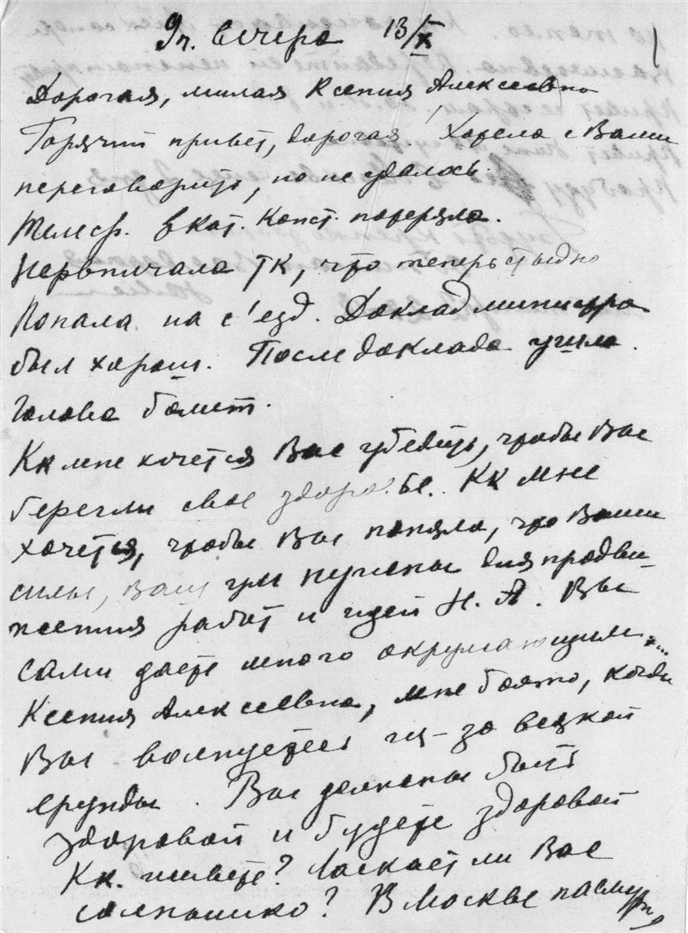 9ч. вечера 13/X
Дорогая, милая Ксения Алексеевна
Горячий привет, дорогая! Хотела с Вами
переговорить, но не удалось.
Телеф. в Кат. Конст. потеряла.
что теперь стыдно
Попала на с'езд. Доклад министра
был хорош. После доклада ушла.
Голова болит.
Кк мне хочется Вас убедить, чтобы Вы
берегли свое здоровье. Кк мне
хочется, чтобы Вы поняла, что Ваши
силы, Ваш ум нужены для продви-
жения работ и идей Н. А. Вы
сами даете много окружающим...
Ксения Алексеевна, мне больно, когда
Вы волнуетесь из-за всякой
ерунды. Вы должены быть
здоровой и будете здоровой
Кк. живете? Ласкает ли Вас
солнышко? В Москве пасмурн,